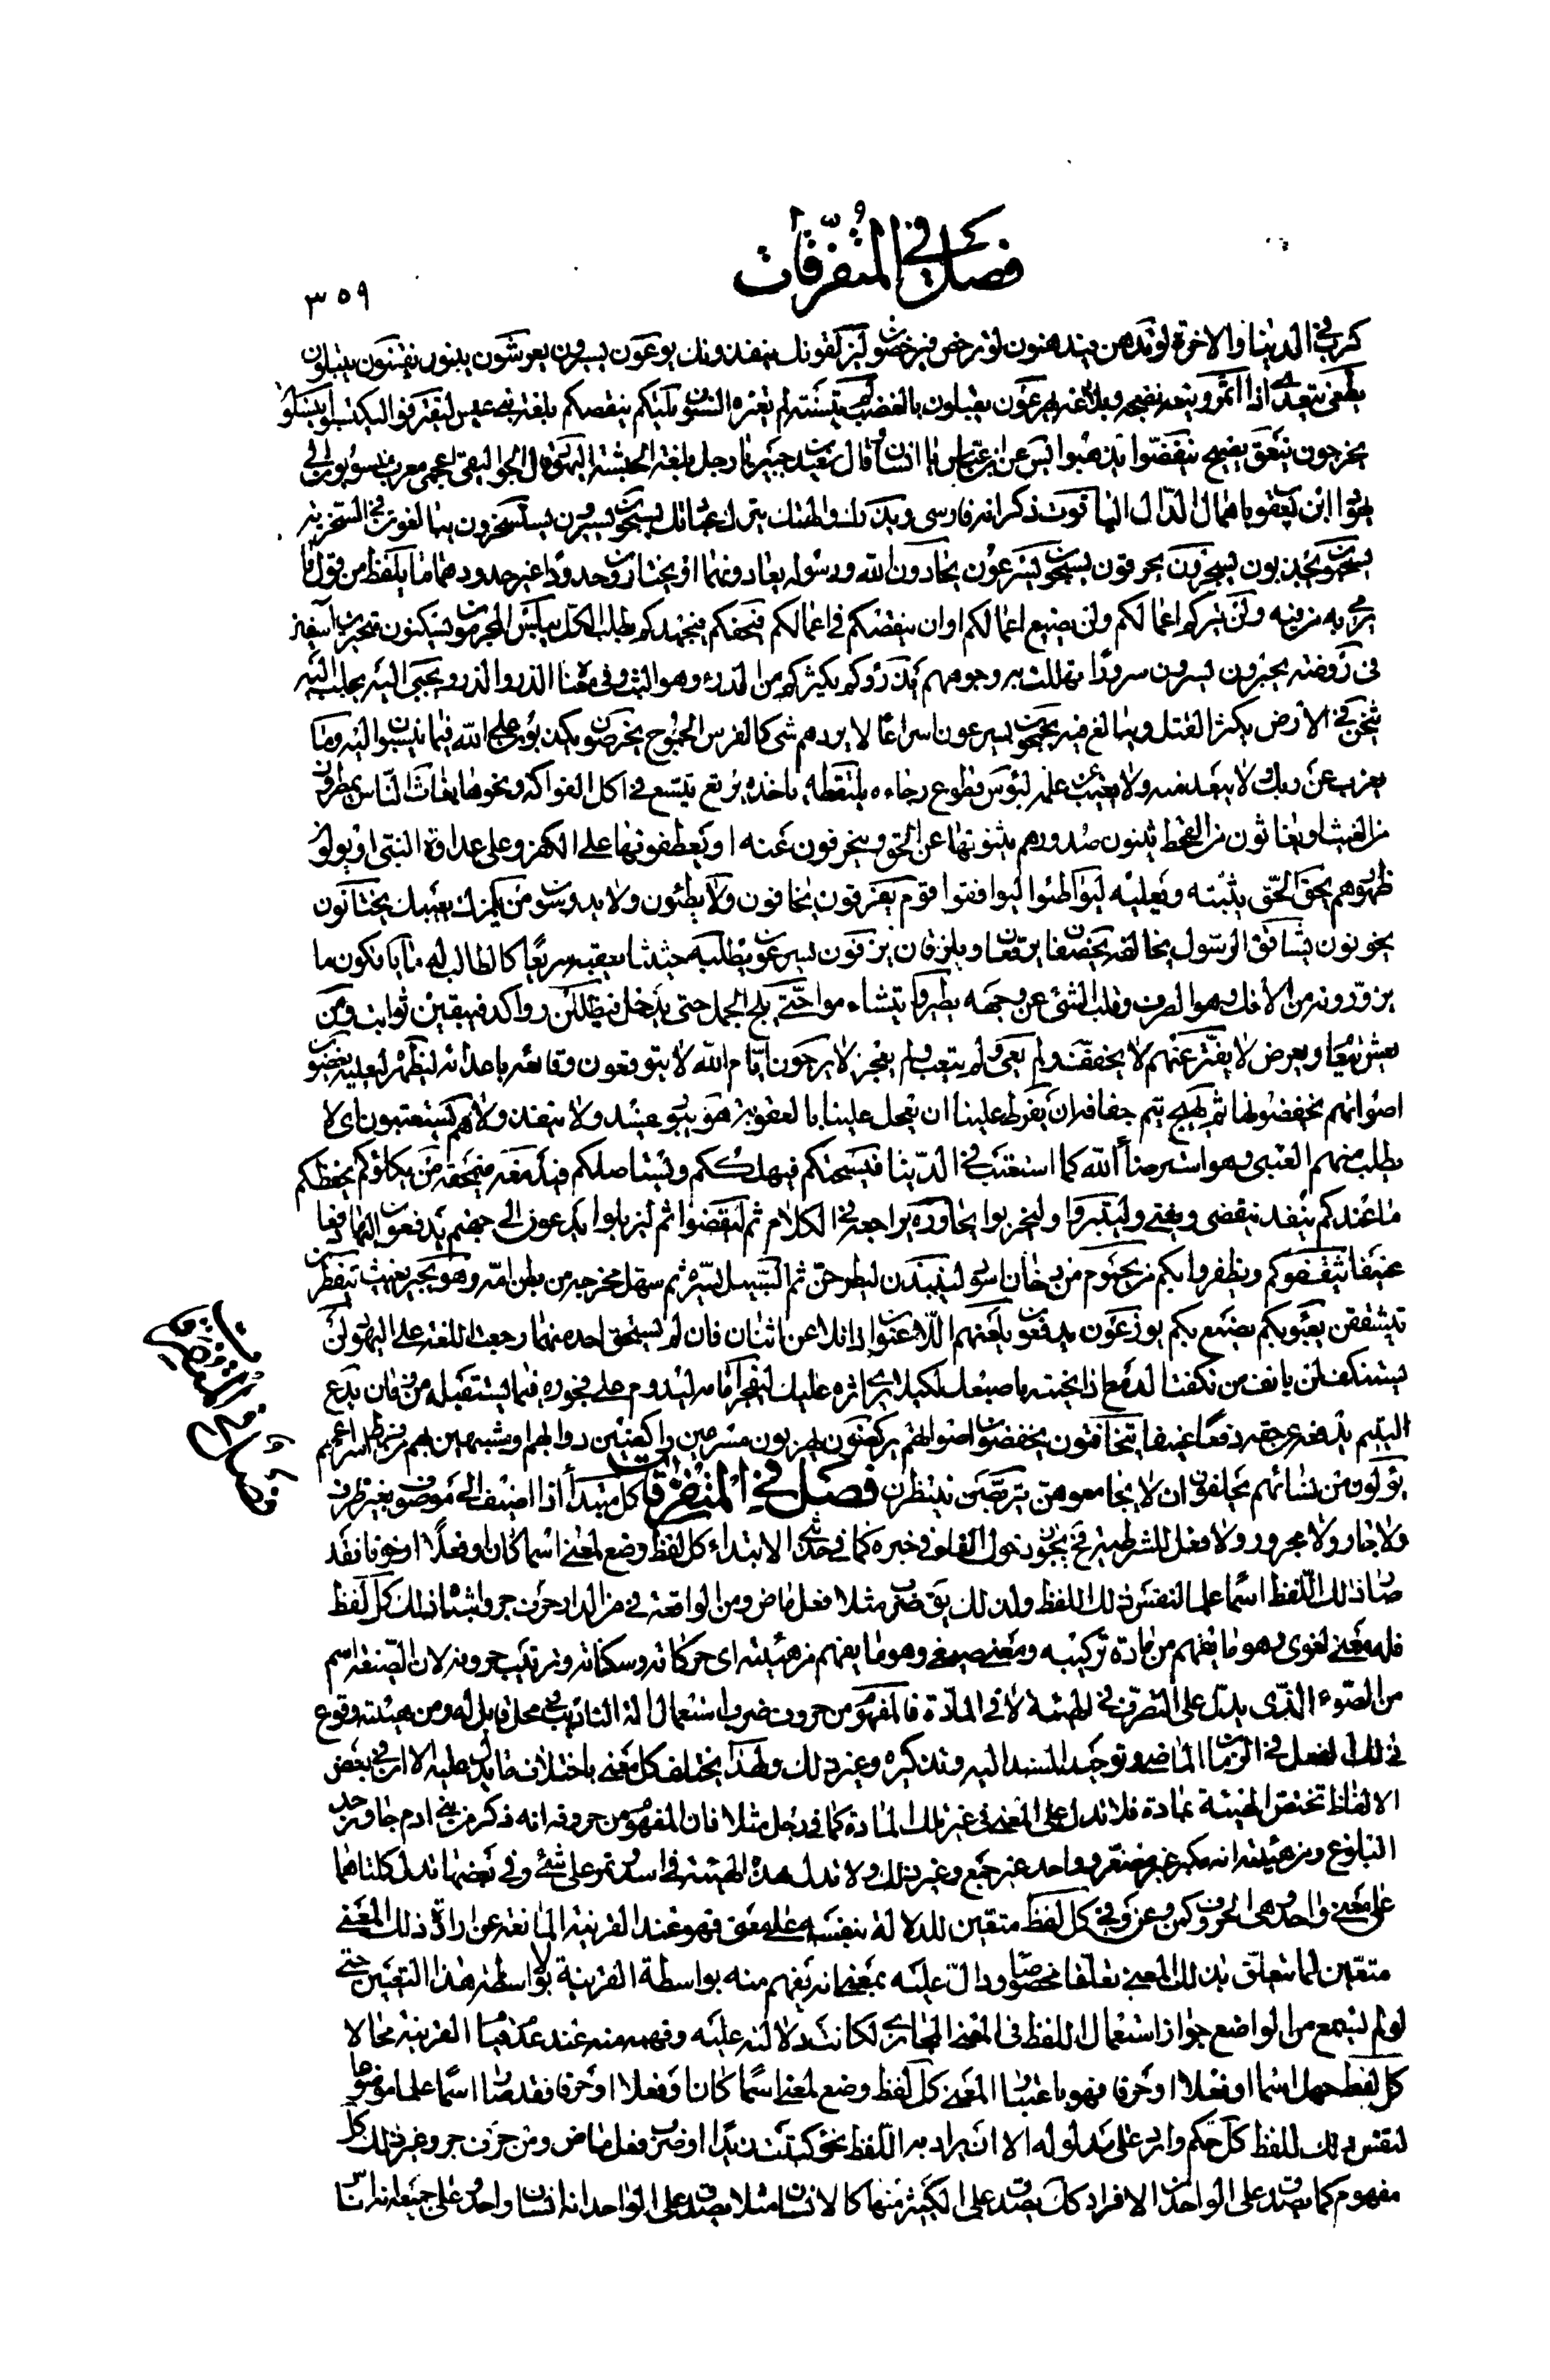 فصل في المتفرقات
٣٥٩
كم في الدنيا والاخرة لو تدهن فيدهنون لو ترخص فيرخصون ليزلقونك ينفذونك يوعون يسرون يعرشون يبنون يفتنون يبتلون
يطغى يتعدى اذا اثمر وينعه نضجه وبلاغته يهرعون يقبلون بالغضب يتسنه لم تغيره السنون يلتكم ينقصكم بلغة بني عبس ليقترفوا ليكتسبوا ينسلون
يخرجون ينعق يصيح ينفضوا يذهبوا يس عن ابن عباس يا انسان وقال سعيد بن جبير يا رجل بلغة الحبشة اليهود قال الجواليقي اعجمي معرب منسوبون الى
يهوذا ابن يعقوب باهمال الدال الياقوت ذكر انه فارسي ويذرك والهتك يترك عبادتك يسبحون يسيرون يستسخرون يبالغون في السخرية
يسحبون يجذبون يسجرون يحرقون يسبحون يسرعون يحادون الله ورسوله يعادونهما او يختارون حدودا غير حدودهما ما يلفظ من قول ما
يرمي به من فيه ولن يتركم اعمالكم ولن يضيع اعمالكم او ان ينقصكم في اعمالكم فيحفكم فيجهدكم بطلب الكل يبلس المجرمون يسكتون متحيرين آيسين
في روضة يحبرون يسرون سرورا تهللت به وجوههم يذرؤكم يكثركم من الذرء وهو البث وفي معناه الذر والذرو يجبى اليه يجلب اليه
يثخن في الارض يكثر القتل ويبالغ فيه يجمحون يسرعون اسراعا لا يردهم شئ كالفرس الجموح يخرصون يكذبون على الله فيما ينسبون اليه وما
يعزب عن ربك لا يبعد عنه ولا يغيب عن علمه ليؤس قطوع رجاءه يلتقطه ياخذه يرتع يتسع في اكل الفواكه ونحوها يغاث الناس يمطرون
من الغيث او يغاثون من القحط يثنون صدورهم يثنونها عن الحق وينحرفون عنه او يعطفونها على الكفر وعلى عداوة النبي او يولون
ظهورهم يحق الحق يثبته ويعليه ليواطئوا ليوافقوا قوم يفرقون يخافون ولا يطئون ولا يدوسون من يلمزك يعيبك يختانون
يخونون يشاقق الرسول يخالفه يخصفان يرقعان ويلزقان يزفون يسرعون يطلبه حثيثا يعقبه سريعا كالطالب له ما يافكون ما
يزورونه من الافك وهو الصرف وقلب الشئ عن وجهه يطيروا يتشاءموا حتى يلج الجمل حتى يدخل فيظللن رواكد فيبقين ثوابت ومن
يعش يتعام ويعرض لا يفتر عنهم لا يخفف عنهم ولم يعي ولم يتعب ولم يعجز لا يرجون ايام الله لا يتوقعون وقائعه باعدائه ليظهره ليعليه يغضون
اصواتهم يخفضونها ثم يهيج يتم جفافه ان يفرط علينا ان يعجل علينا بالعقوبة هو يبور يفسد ولا ينفذ ولا هم يستعتبون اي لا
يطلب منهم العتبى وهو استرضاء الله كما استعتب في الدنيا فيسحتكم فيهلككم ويستاصلكم فيدمغه فيمحقه من يكلؤكم يحفظكم
ما عندكم ينفد ينقضي ويفنى وليتبروا وليخربوا يحاوره يراجعه في الكلام ثم ليقضوا ثم ليزيلوا يدعون الى جهنم يدفعون اليها دفعا
عنيفا يثقفوكم ويظفروا بكم من يحموم من دخان اسود لينبذن ليطرحن ثم السبيل يسره ثم سهل مخرجه من بطن امه وهو يجير يغيث تتفطرن
تتشققن يعبؤ بكم يصنع بكم يوزعون يدفعون يلعنهم اللاعنون اذا تلاعن اثنان فان لم يستحق احد منهما رجعت اللعنة على اليهود لن
يستنكف لن يانف من نكفت الدمع اذا نحيته باصبعك لكيلا يرى اثره عليك ليفجر امامه ليدوم على فجوره فيما يستقبله من زمان يدع
اليتيم يدفعه عن حقه دفعا عنيفا يتخافتون يخفضون اصواتهم يركضون يهربون مسرعين راكضين دوابهم او مشبهين بهم من فرط اسراعهم
يؤلون من نسائهم يحلفون ان لا يجامعوهن يتربصن ينتظرن فصل في المتفرقات كل مبتدأ اذا اضيف الى موصوف بغير ظرف
ولا جار ولا مجرور ولا فعل للشرطية فح يجوز دخول الفاء في خبره كما في حديث الابتداء كل لفظ وضع لمعنى اسما كان او فعلا او حرفا فقد
صار ذلك اللفظ اسما علما لنفس ذلك اللفظ ولذلك يق ضرب مثلا فعل ماض ومن الواقعة في من الدار حرف جر واشباه ذلك كل لفظ
فله معنى لغوي وهو ما يفهم من مادة تركيبه ومعنى صيغي وهو ما يفهم من هيئته اي حركاته وسكناته وترتيب حروفه لان الصيغة اسم
من الصوغ الذي يدل على التصرف في الهيئة لا في المادة فالمفهوم من حروف ضرب استعمال آلة التاديب في محل قابل له ومن هيئته وقوع
ذلك الفعل في الزمان الماضي وتوحيد المسند اليه وتذكيره وغير ذلك ولهذا يختلف كل معنى باختلاف ما يدل عليه الا ان في بعض
الالفاظ تختص الهيئة بمادة فلا تدل على المعنى في غير تلك المادة كما في رجل مثلا فان المفهوم من حروفه انه ذكر من بني ادم جاوز حد
البلوغ ومن هيئته انه مكبر غير مصغر وواحد غير جمع وغير ذلك ولا تدل هذه الهيئة في اسد ونمر على شئ وفي بعضها تدل كلتاهما
على معنى واحد وهي الحروف كمن وعن وفي كل لفظ متعين للدلالة بنفسه على معنى فهو عند القرينة المانعة عن ارادة ذلك المعنى
متعين لما يتعلق بذلك المعنى تعلقا مخصوصا ودال عليه بمعنى انه يفهم منه بواسطة القرينة لا بواسطة هذا التعين حتى
لو لم يسمع من الواضع جواز استعمال اللفظ في المعنى المجازي لكانت دلالته عليه وفهمه منه عند عدم قيام القرينة بحالا
كل لفظ مهمل اسما او فعلا او حرفا فهو باعتبار المعنى كل لفظ وضع لمعنى اسما كان او فعلا او حرفا فقد صار اسما علما موضوعا
لنفس ذلك اللفظ كل حكم وارد على مدلوله الا ان يراد به اللفظ نحو كتبت زيدا او ضرب فعل ماض ومن حرف جر وغير ذلك كل
مفهوم كما يصدق على الواحد من الافراد كك يصدق على الكثير منها كالانسان مثلا يصدق على الواحد انه انسان واحد وعلى جميعه انه اناس